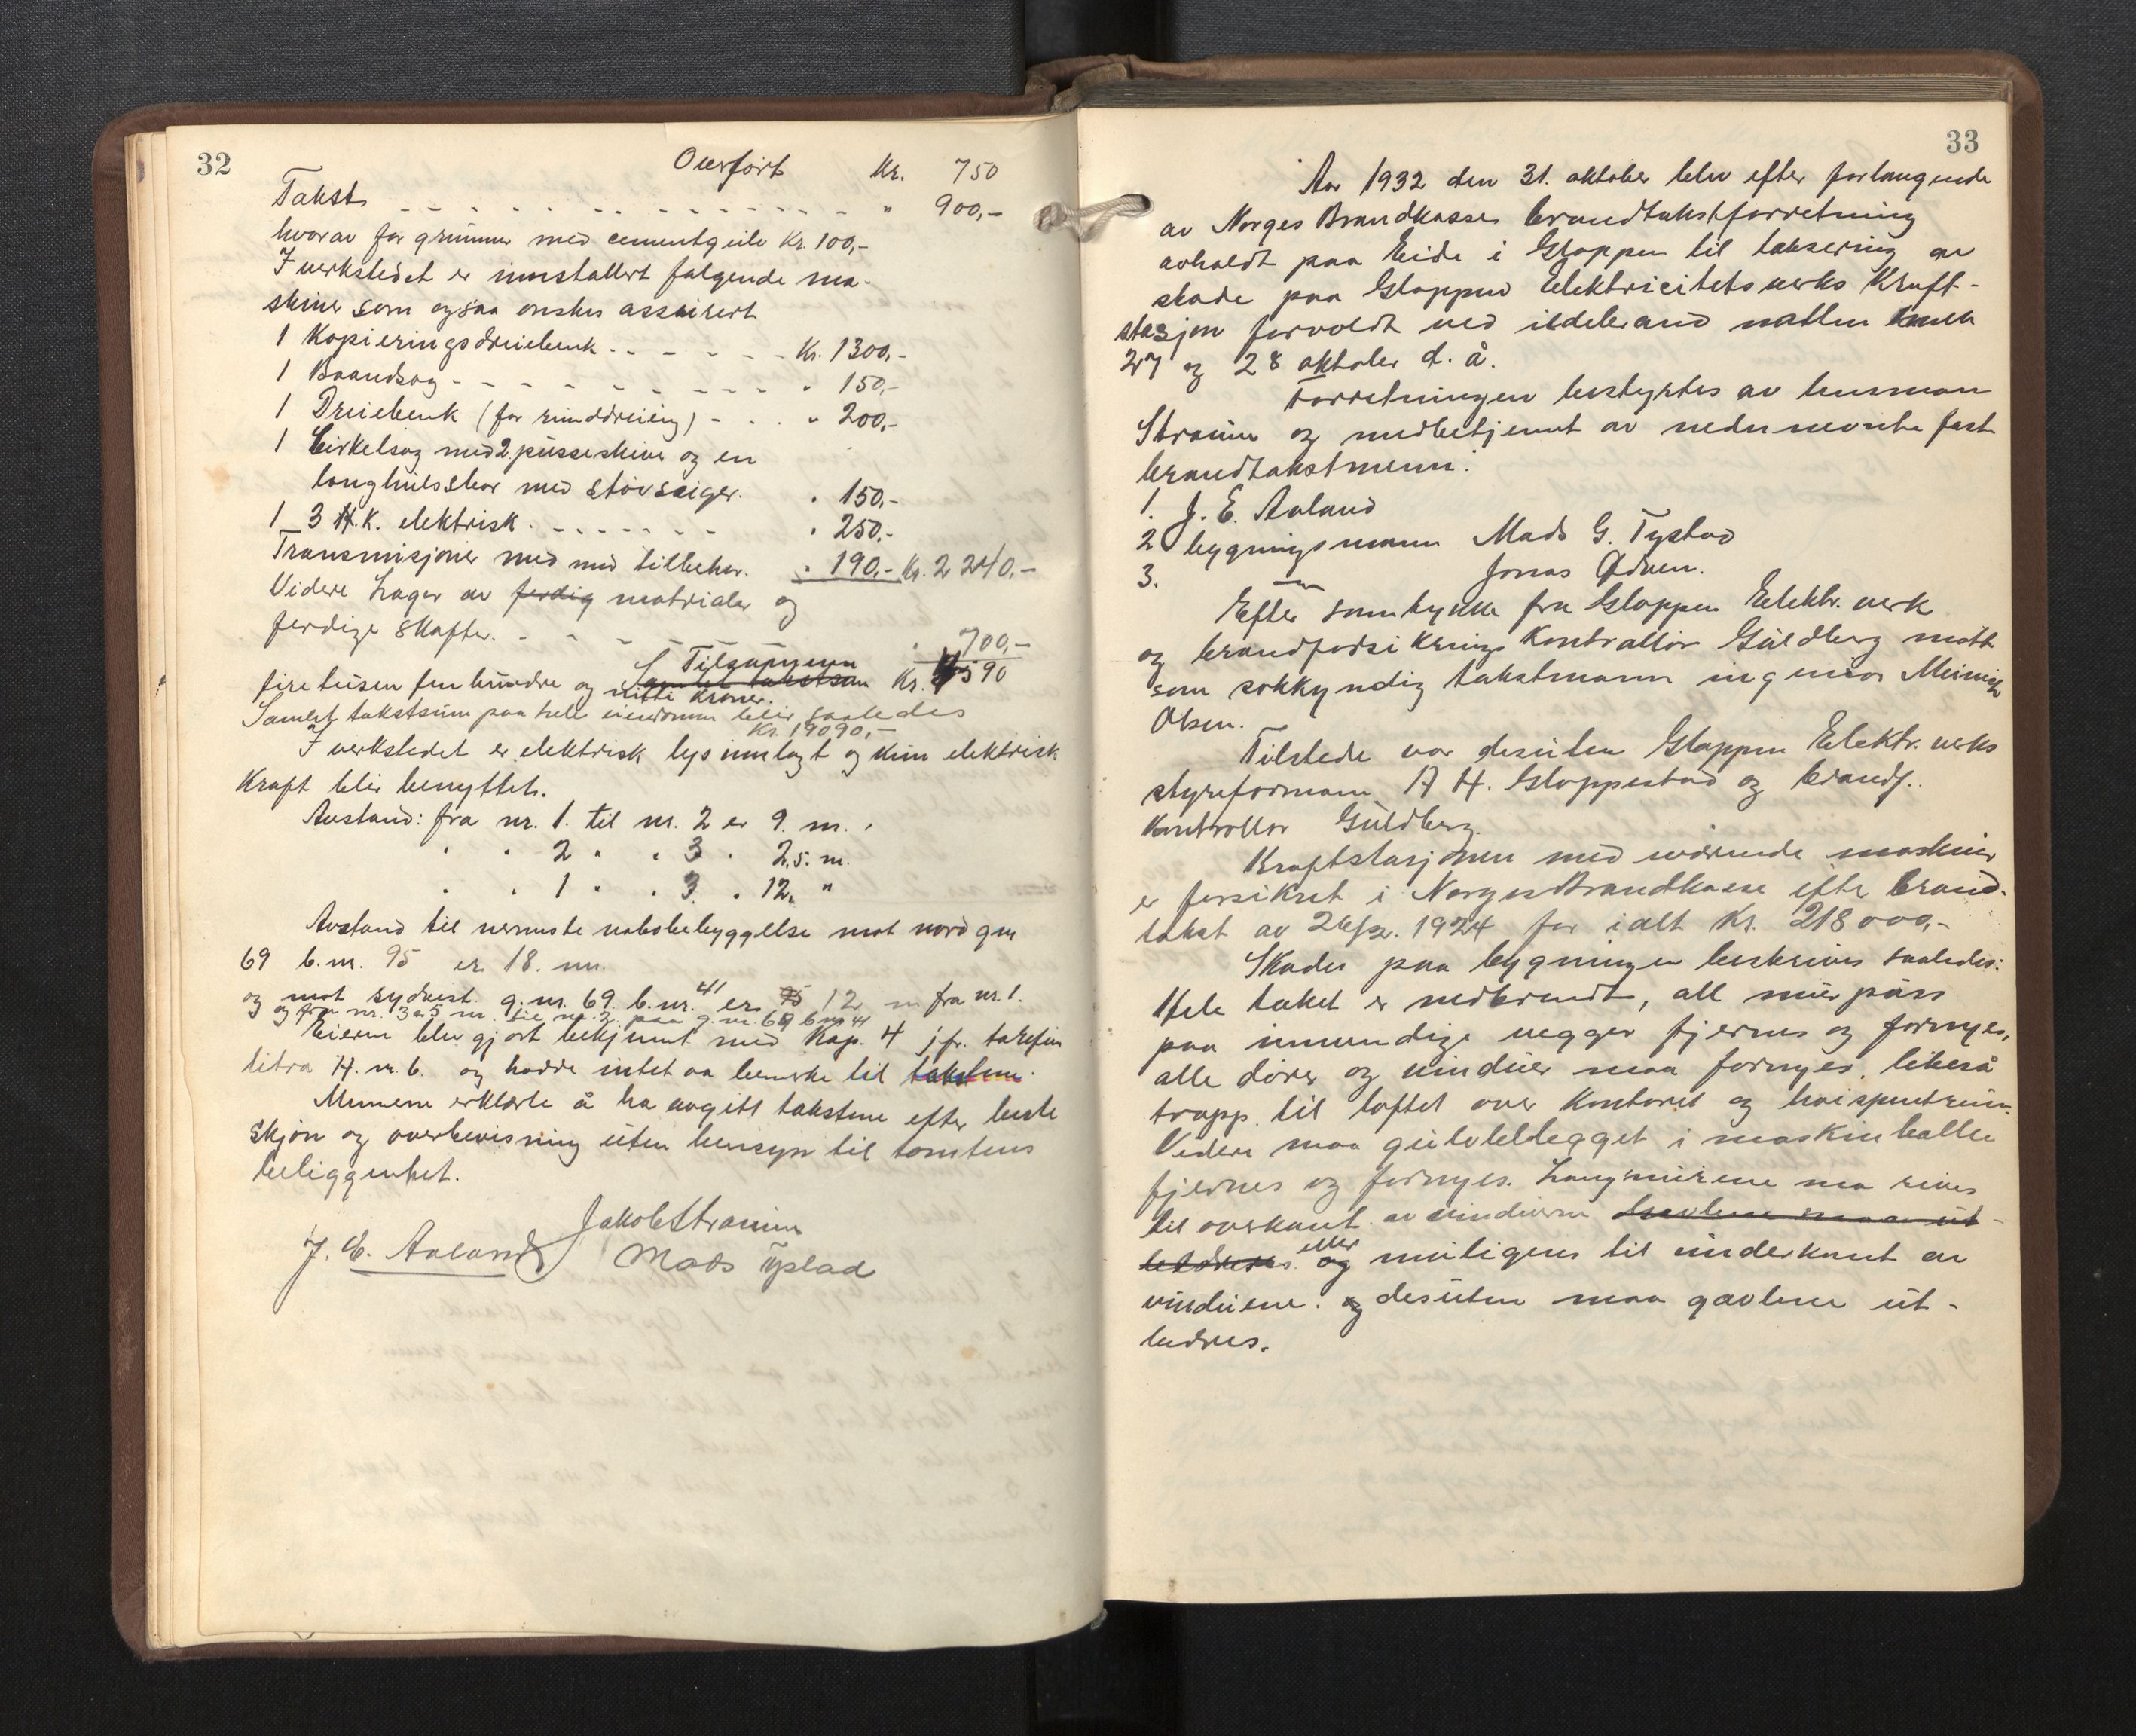 32
Overført Kr. 750
Takst " 900,-
hvorav for grunmur med cementgulv Kr 100,-
I verkstedet er innstallert følgende ma-
skiner som ogsaa ønskes assurert
1 Kopieringsdreiebenk Kr. 1300,-
1 Baandsag " 150,-
1 Dreiebenk (for runddreiing) " 200,-
1 Cirkelsag med 2 pusseskiver og en
langhulsbor med støvsuger. " 150,-
1 3 H.K. elektrisk " 250,-
Transmisjoner med tilbehør. " 190,- Kr. 2240,-
Videre Lager av ferdig matrialer og
ferdige skafter. " 700,-
Tilsammen
Samlet takstsum Kr. 4590
fire tusen fem hundre og nitti kroner.
Samlet takstsum paa hele eiendommen blir saaledes
Kr. 19090,-
I verkstedet er elektrisk lys innlagt og kun elektrisk
Kraft blir benyttet.
Avstand: fra nr. 1. til nr. 2 er 9. m.
" " 2 " " 3 " 2,5. m.
" " 1 " " 3. " 12. "
Avstand til nermste nabobebyggelse mot nord gnr
69 b.nr. 95 er 18. m.
og mot sydvest. g.nr. 69. b.nr. 41 er 12 m fra nr. 1.
og fra nr. 3 er 5 m. til nr. 2. paa g.nr. 69 bnr 41
Eieren blev gjort bekjennt med Kap. 4 jfr. tarifen
litra H. nr. 6. og hadde intet aa bemerke til takstene.
Mennene erklærte å ha avgitt takstene efter beste
skjøn og overbevisning uten hensyn til tomtens
beliggenhet.
Jakob Straume
J. E. Aaland Mads Tystad
33
Aar 1932 den 31. oktober blev efter forlangende
av Norges Brandkasse brandtakstforretning
avholdt paa Eide i Gloppen til taksering av
skade paa Gloppen Elektricitetsverks Kraft-
stasjon forvoldt ved ildebrand natten mellem
27 og 28 oktober d. å.
Forretningen bestyrtes av lensman
Straume og medbetjennt av nedennevnte fast
brandtakstmenn:
1. J. E. Aaland
2 bygningsmann Mads G. Tystad
3. " Jonas Ødven.
Efter samtykke fra Gloppen Elektr. verk
og brandforsikrings Kontrollør Guldberg møtte
som sakkyndig takstmann ingeniør Meinich
Olsen.
Tilstede var desuten Gloppen Elektr. verks
styreformann A H. Gloppestad og brandf.
Kontrollør Guldberg.
Kraftstasjonen med iværende maskiner
er forsikret i Norges Brandkasse efter brand-
takst av 26/2. 1924 for ialt Kr. 218000,-
Skader paa bygningen beskrives saaledes:
Hele taket er nedbrendt, all mur puss
paa innvendige vegger fjernes og fornyes,
alle dører og vinduer maa fornyes. likeså
trapp. til loftet over Kontoret og høispentrum.
Videre maa gulvbelegget i maskinhallen
fjernes og fornyes. Langmurene maa rives
til overkant av vinduerne Gavlene maa ut-
bedres. eller og muligens til underkant av
vinduene. og desuten maa gavlene ut-
bedres.